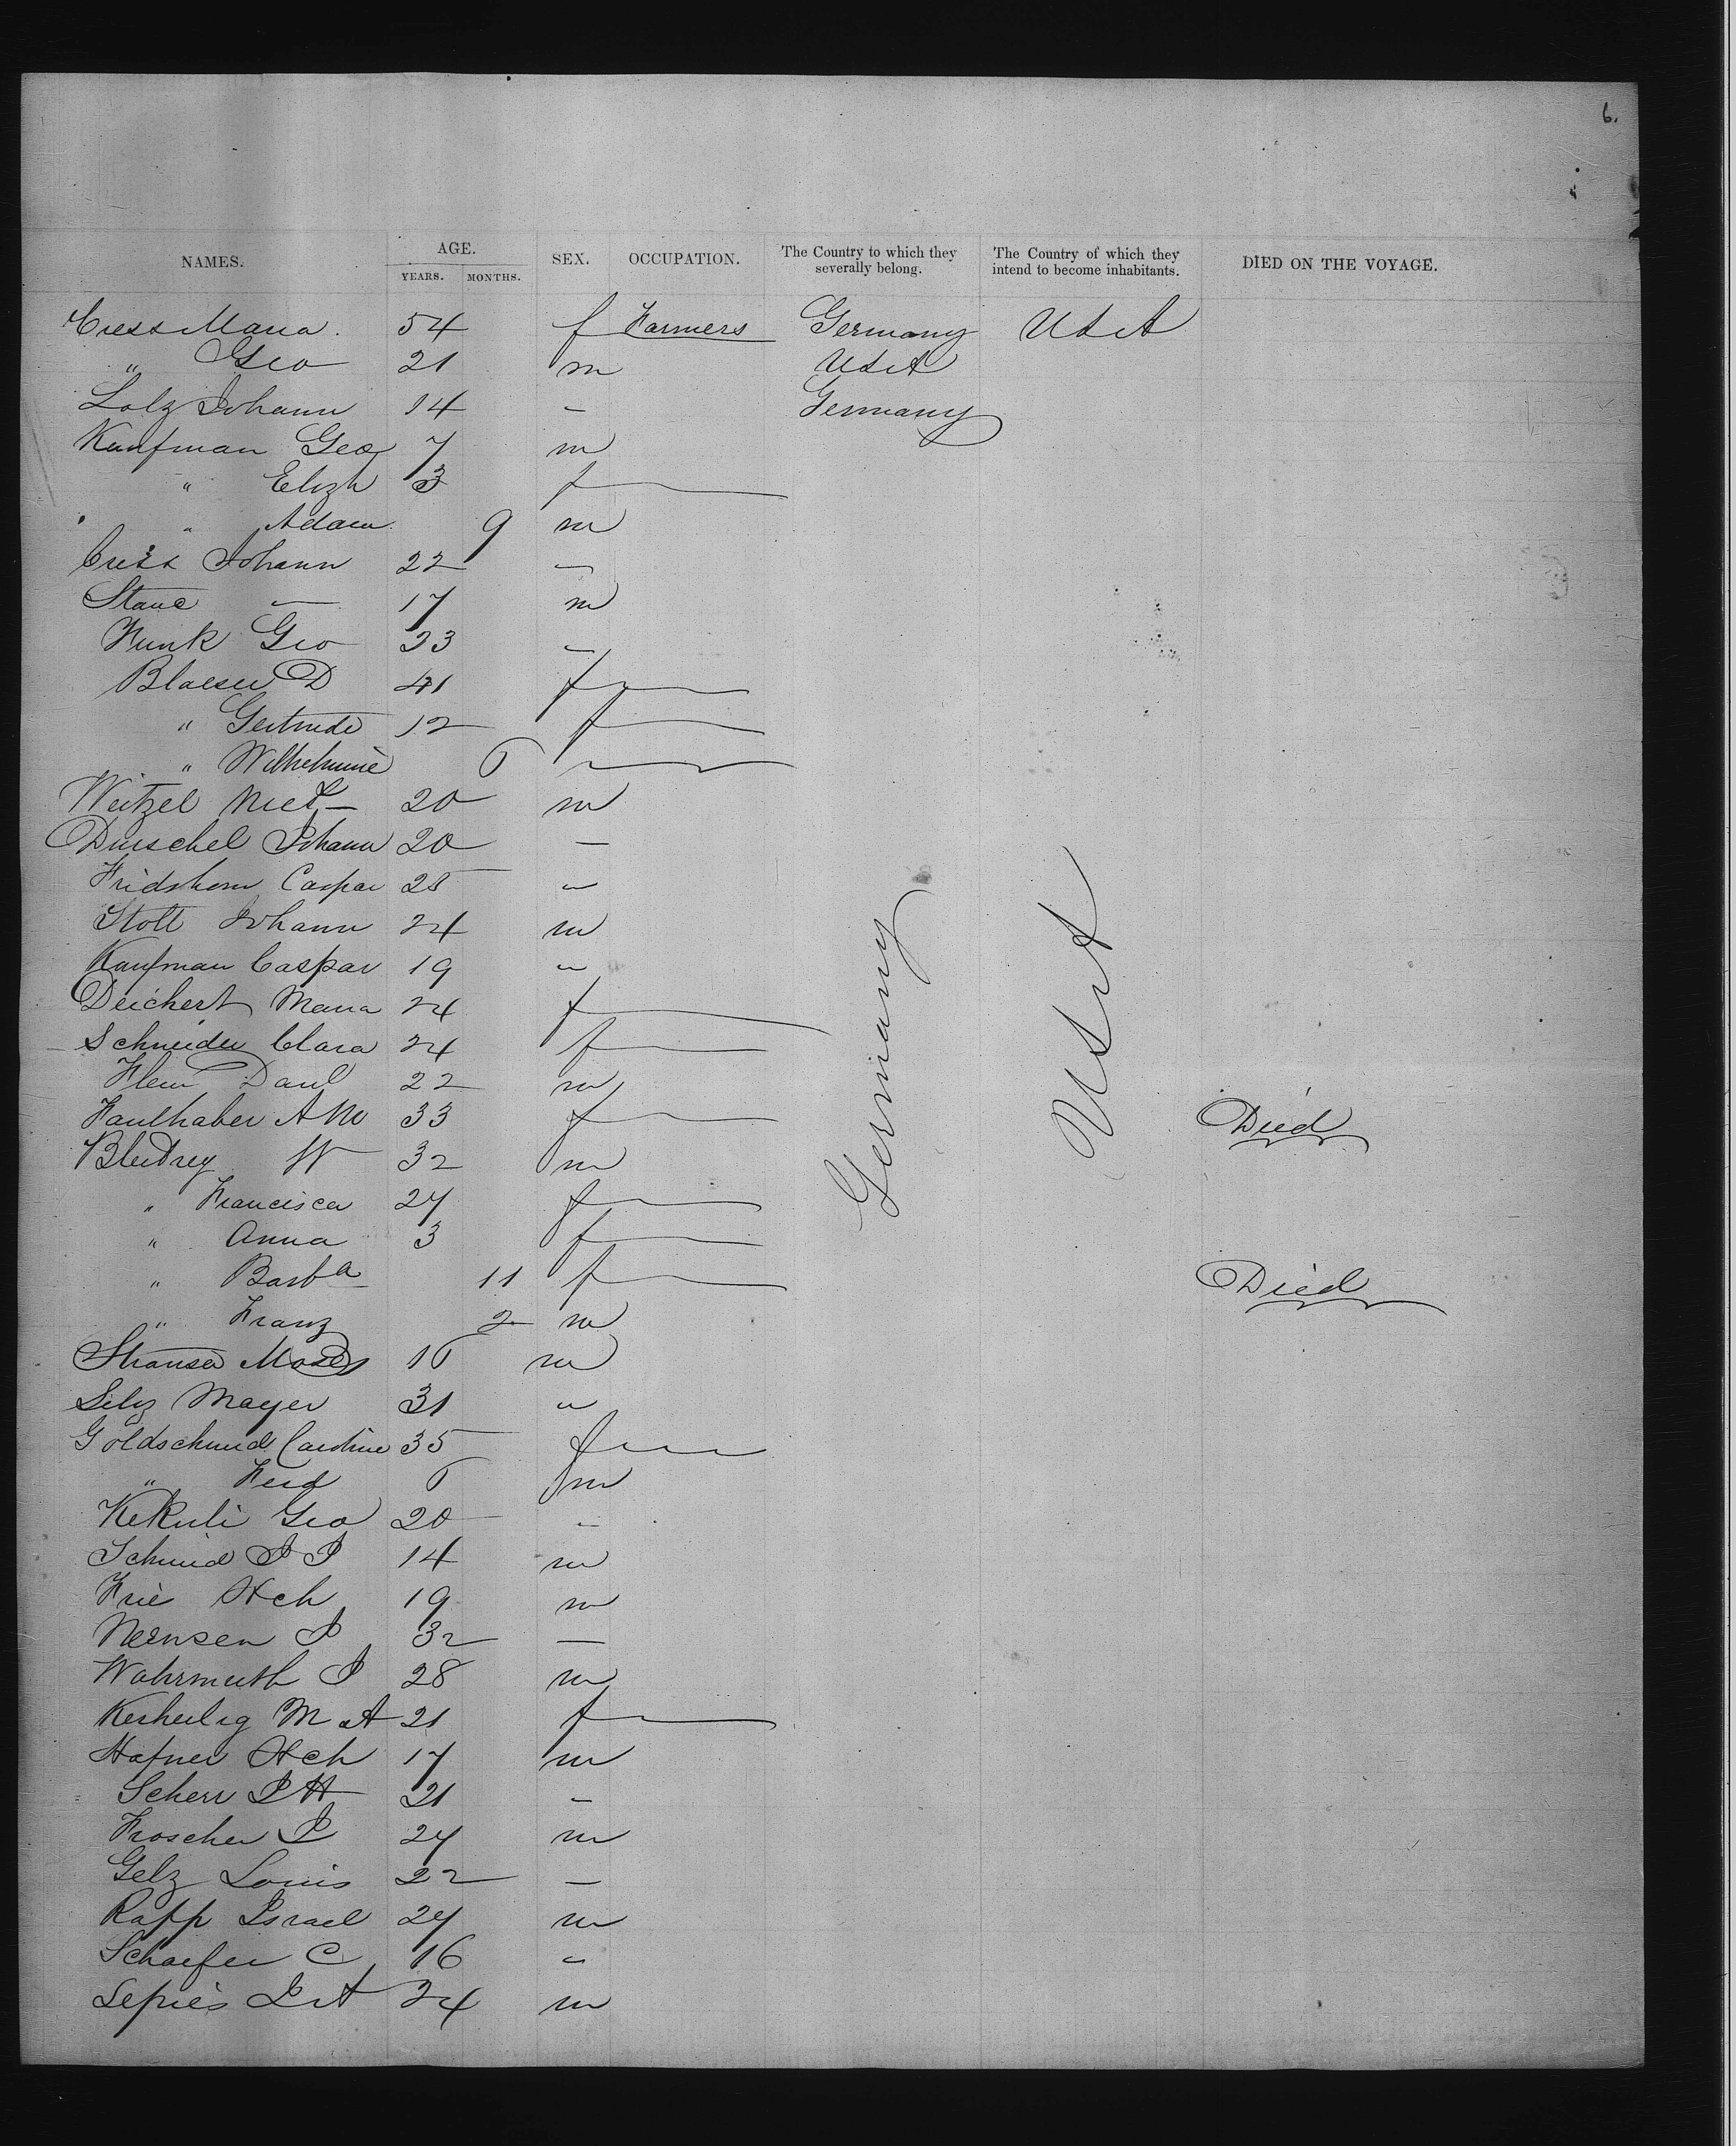 6.
NAMES. AGE. YEARS. MONTHS. SEX. OCCUPATION. The Country to which they severally belong. The Country of which they intend to become inhabitants. DIED ON THE VOYAGE.
Cress Maria. 54 f Farmers Germany USA
" Geo 21 m USA
Lolz Johann 14 — Germany
Kaufman Geo 7 m
" Elizh 3 f
" Adam 9 m
Cress Johann 22 —
— 17 m
Funk Geo 23 —
Blaeser D 41 f
" Gertrude 12 f
" Wilhelmine 6 —
Weitzel 20 m
Duischel Johann 20 —
Caspar 25 "
Stoll Johann 24 m
Kaufman Caspar 19 "
Deichert Maria 24 f
Schneider Clara 24 f
Danl 22 m
Faulhaber A M 33 f Died
W 32 m
" Francisca 27 f
" Anna 3 f
" Barba 11 f Died
" Franz 2 m
Moses 16 m
Mayer 31 "
Goldschmid Caroline 35 f
" Ferd 6 m
Kekuli Geo 20 —
Schmid J J 14 m
Hch 19 m
J 32 —
Wahrmuth J 28 m
M A 21 f
Hafner Hch 17 m
Scherr J H 21 —
Froscher J 24 m
Gelz Louis 22 —
Rapp Israel 24 m
Schaefer C 16 "
J A 24 m
Germany
USA